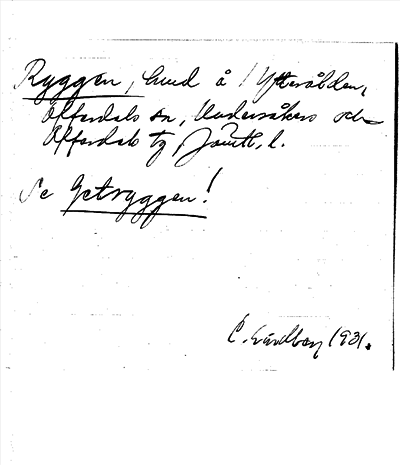 Ryggen, lund å Ytterolden,
Offerdals sn, Undersåkers och
Offerdals tg, Jämtl. l.
Se Getryggen!
C. Lindberg 1931.